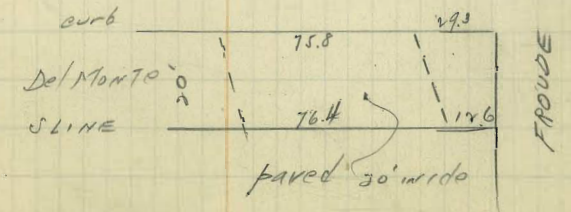 curb
75.8
29.3
Del MONTE
SLINE
76.4
12.6
FROUDE
paved 30' wide